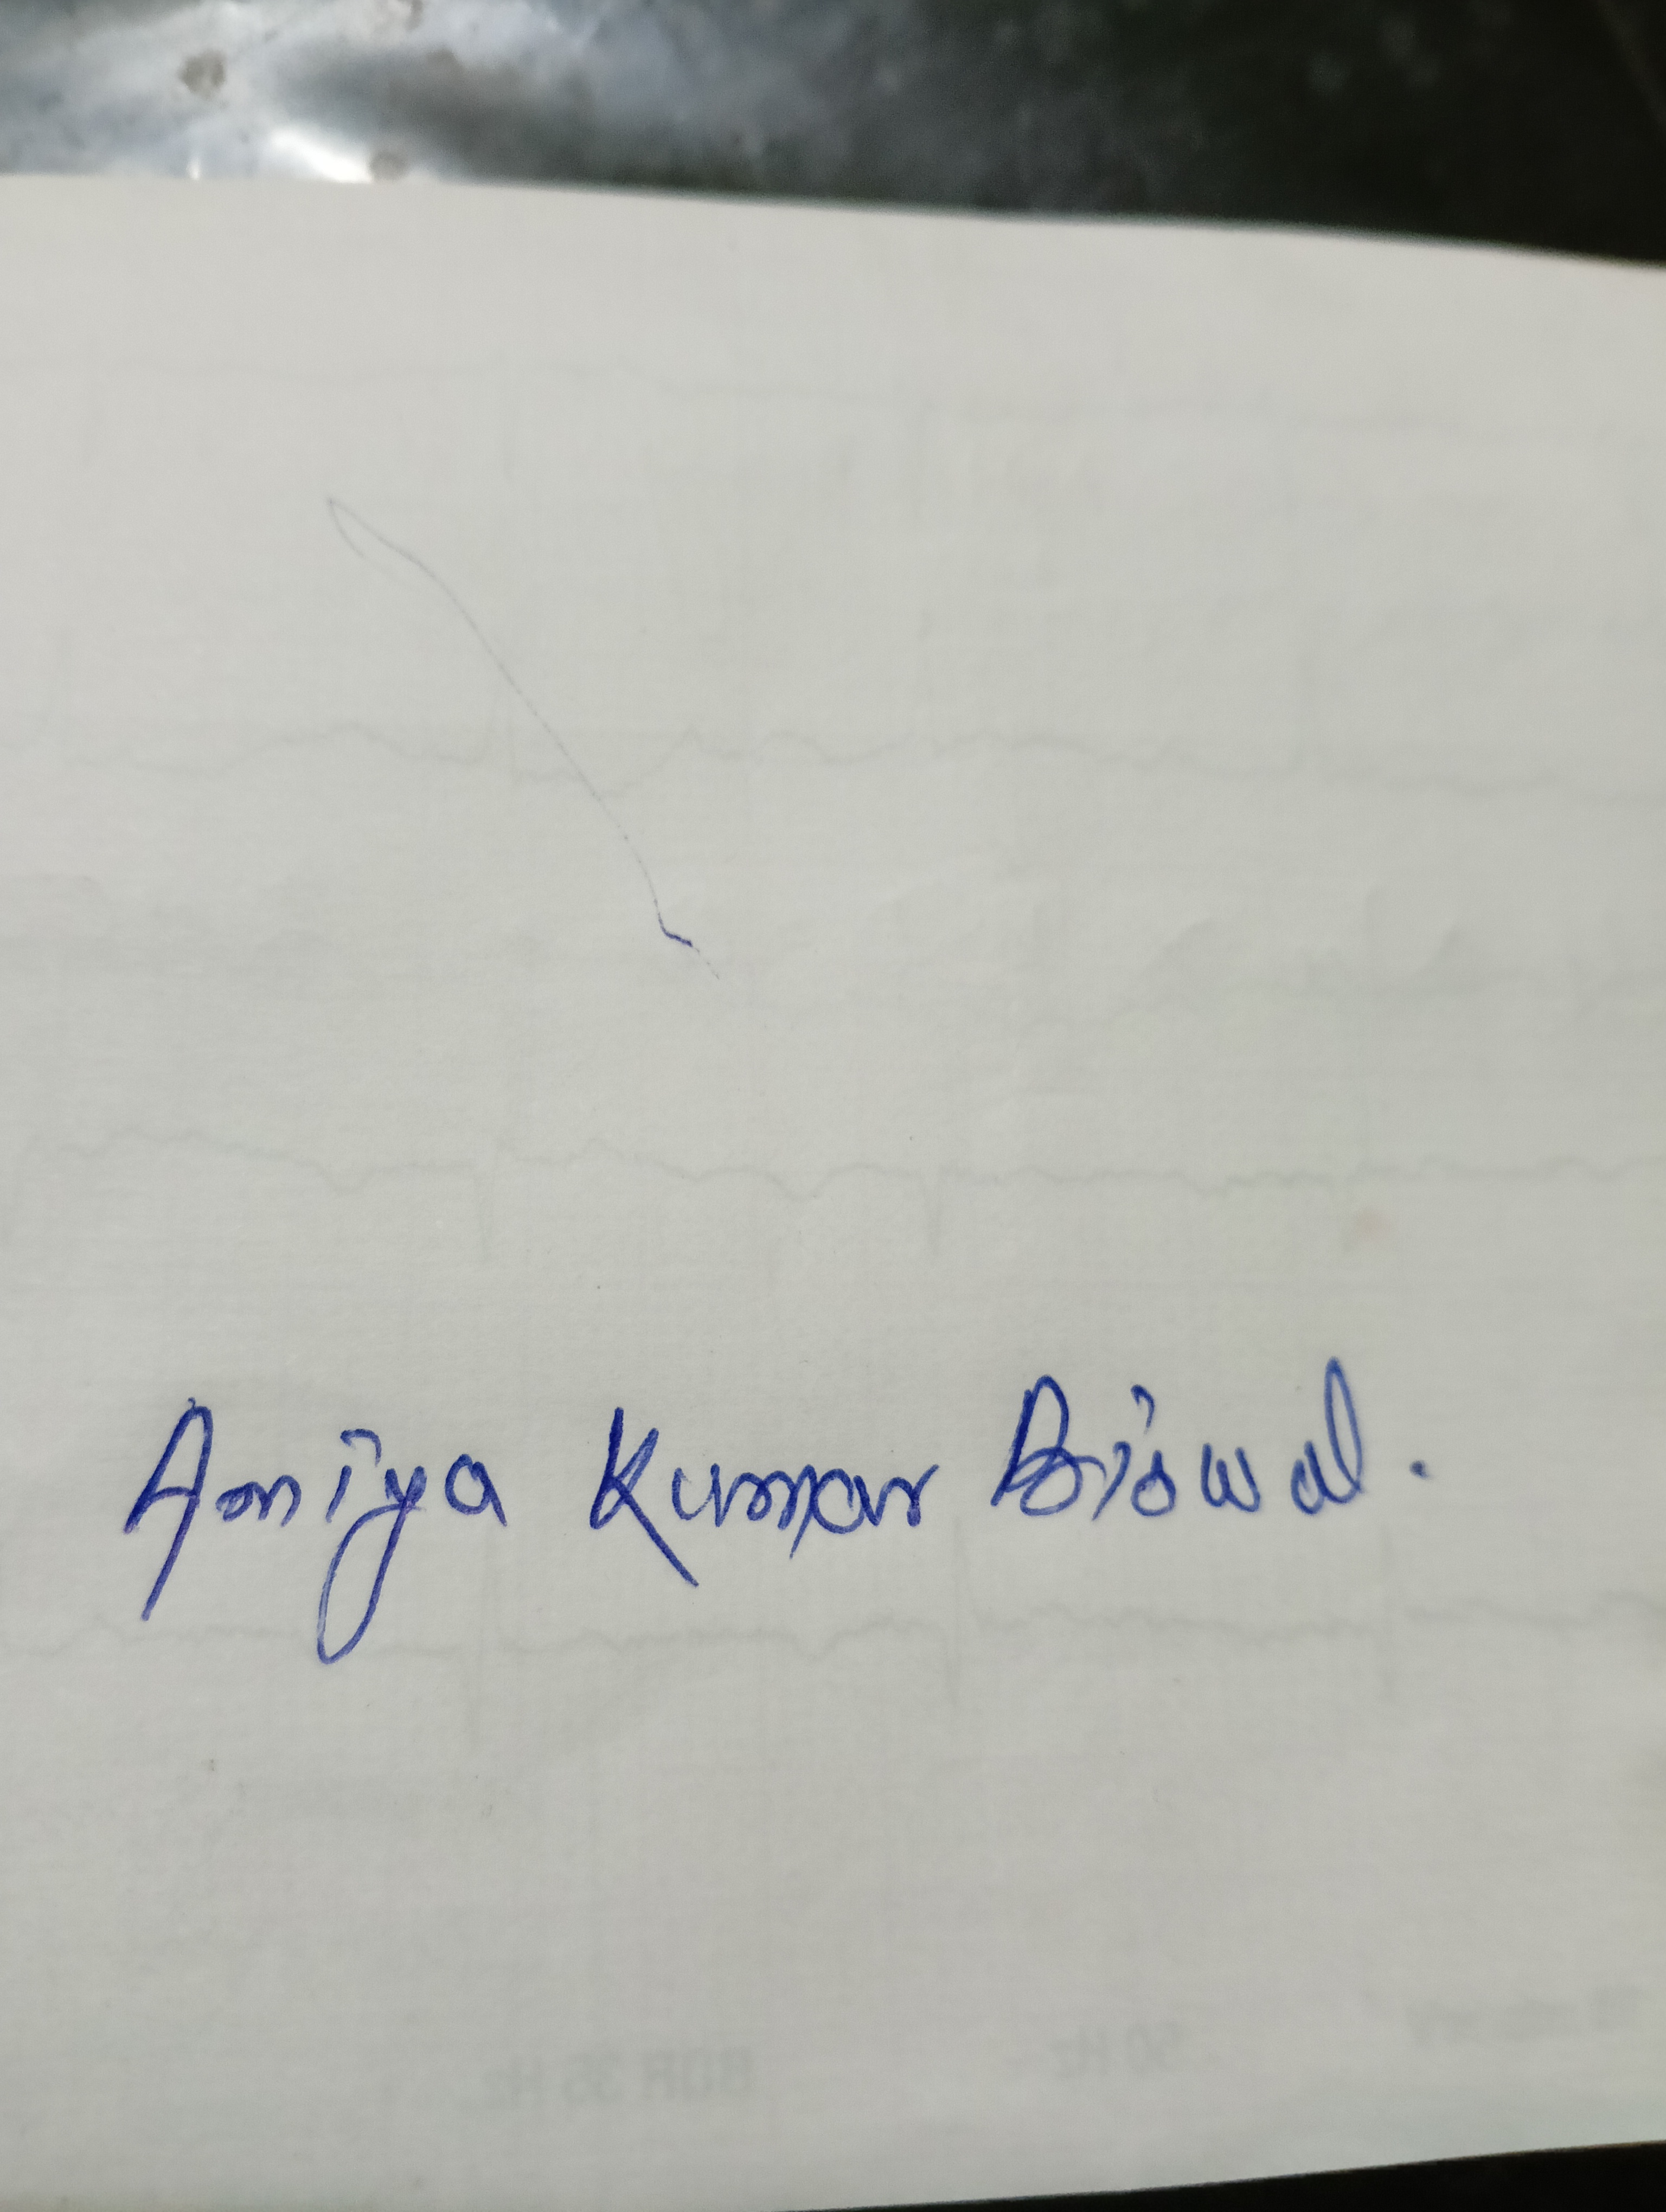 Amiya Kumar Biswal.